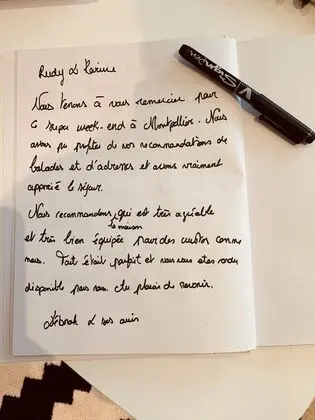 Rudy & Karine
Nous tenons à vous remercier pour
ce super week-end à Montpellier. Nous
avons pu profiter de vos recommandations de
balades et d'adresses et avons vraiment
apprécié le séjour.
Nous recommandons, qui est très agréable
la maison
et très bien équipée pour des cuistos comme
nous. Tout était parfait et vous vous êtes rendu
disponible pour nous. Au plaisir de revenir.
& ses amis